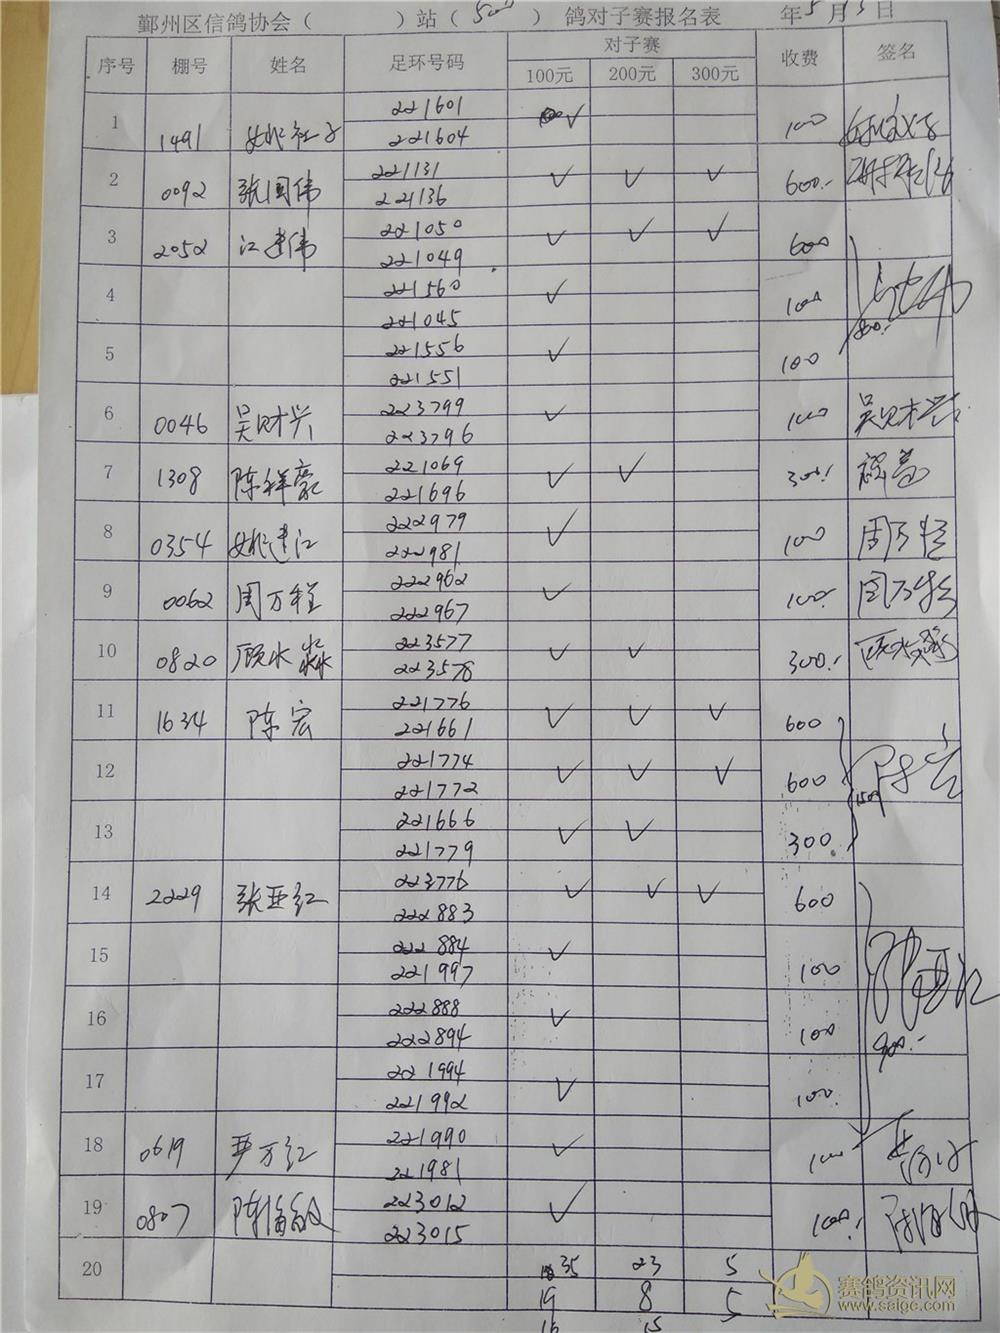 鄞州区信鸽协会（ ）站（ 500 ）鸽对子赛报名表 年5月13日
序号 棚号 姓名 足环号码 对子赛 收费 签名
100元 200元 300元
1 1491 221601 ✓ 100
221604
2 0092 张国伟 221131 ✓ ✓ ✓ 600.-
221136
3 2052 江建伟 221050 ✓ ✓ ✓ 600
221049
4 221560 ✓ 100
221045 800.-
5 221556 ✓ 100
221551
6 0046 吴财兴 223799 ✓ 100 吴财兴
223796
7 1308 陈祥豪 221069 ✓ ✓ 300.-
221696
8 0354 姚建江 222979 ✓ 100 周万程
222981
9 0062 周万程 222962 ✓ 100.- 周万程
222967
10 0820 顾水淼 223577 ✓ ✓ 300.- 顾水淼
223578
11 1634 陈宏 221776 ✓ ✓ ✓ 600
221661
12 221774 ✓ ✓ ✓ 600 陈宏
221772 1500
13 221666 ✓ ✓ 300.
221779
14 2229 张亚红 223776 ✓ ✓ ✓ 600
222883
15 222884 ✓ 100 张亚红
221997
16 222888 ✓ 100
222894 900.-
17 221994 ✓ 100.
221992
18 0619 严万红 221990 ✓ 100
221981
19 0807 223012 ✓ 100.
223015
20 35 23 5
19 8 5
16 15
赛鸽资讯网
www.saigc.com